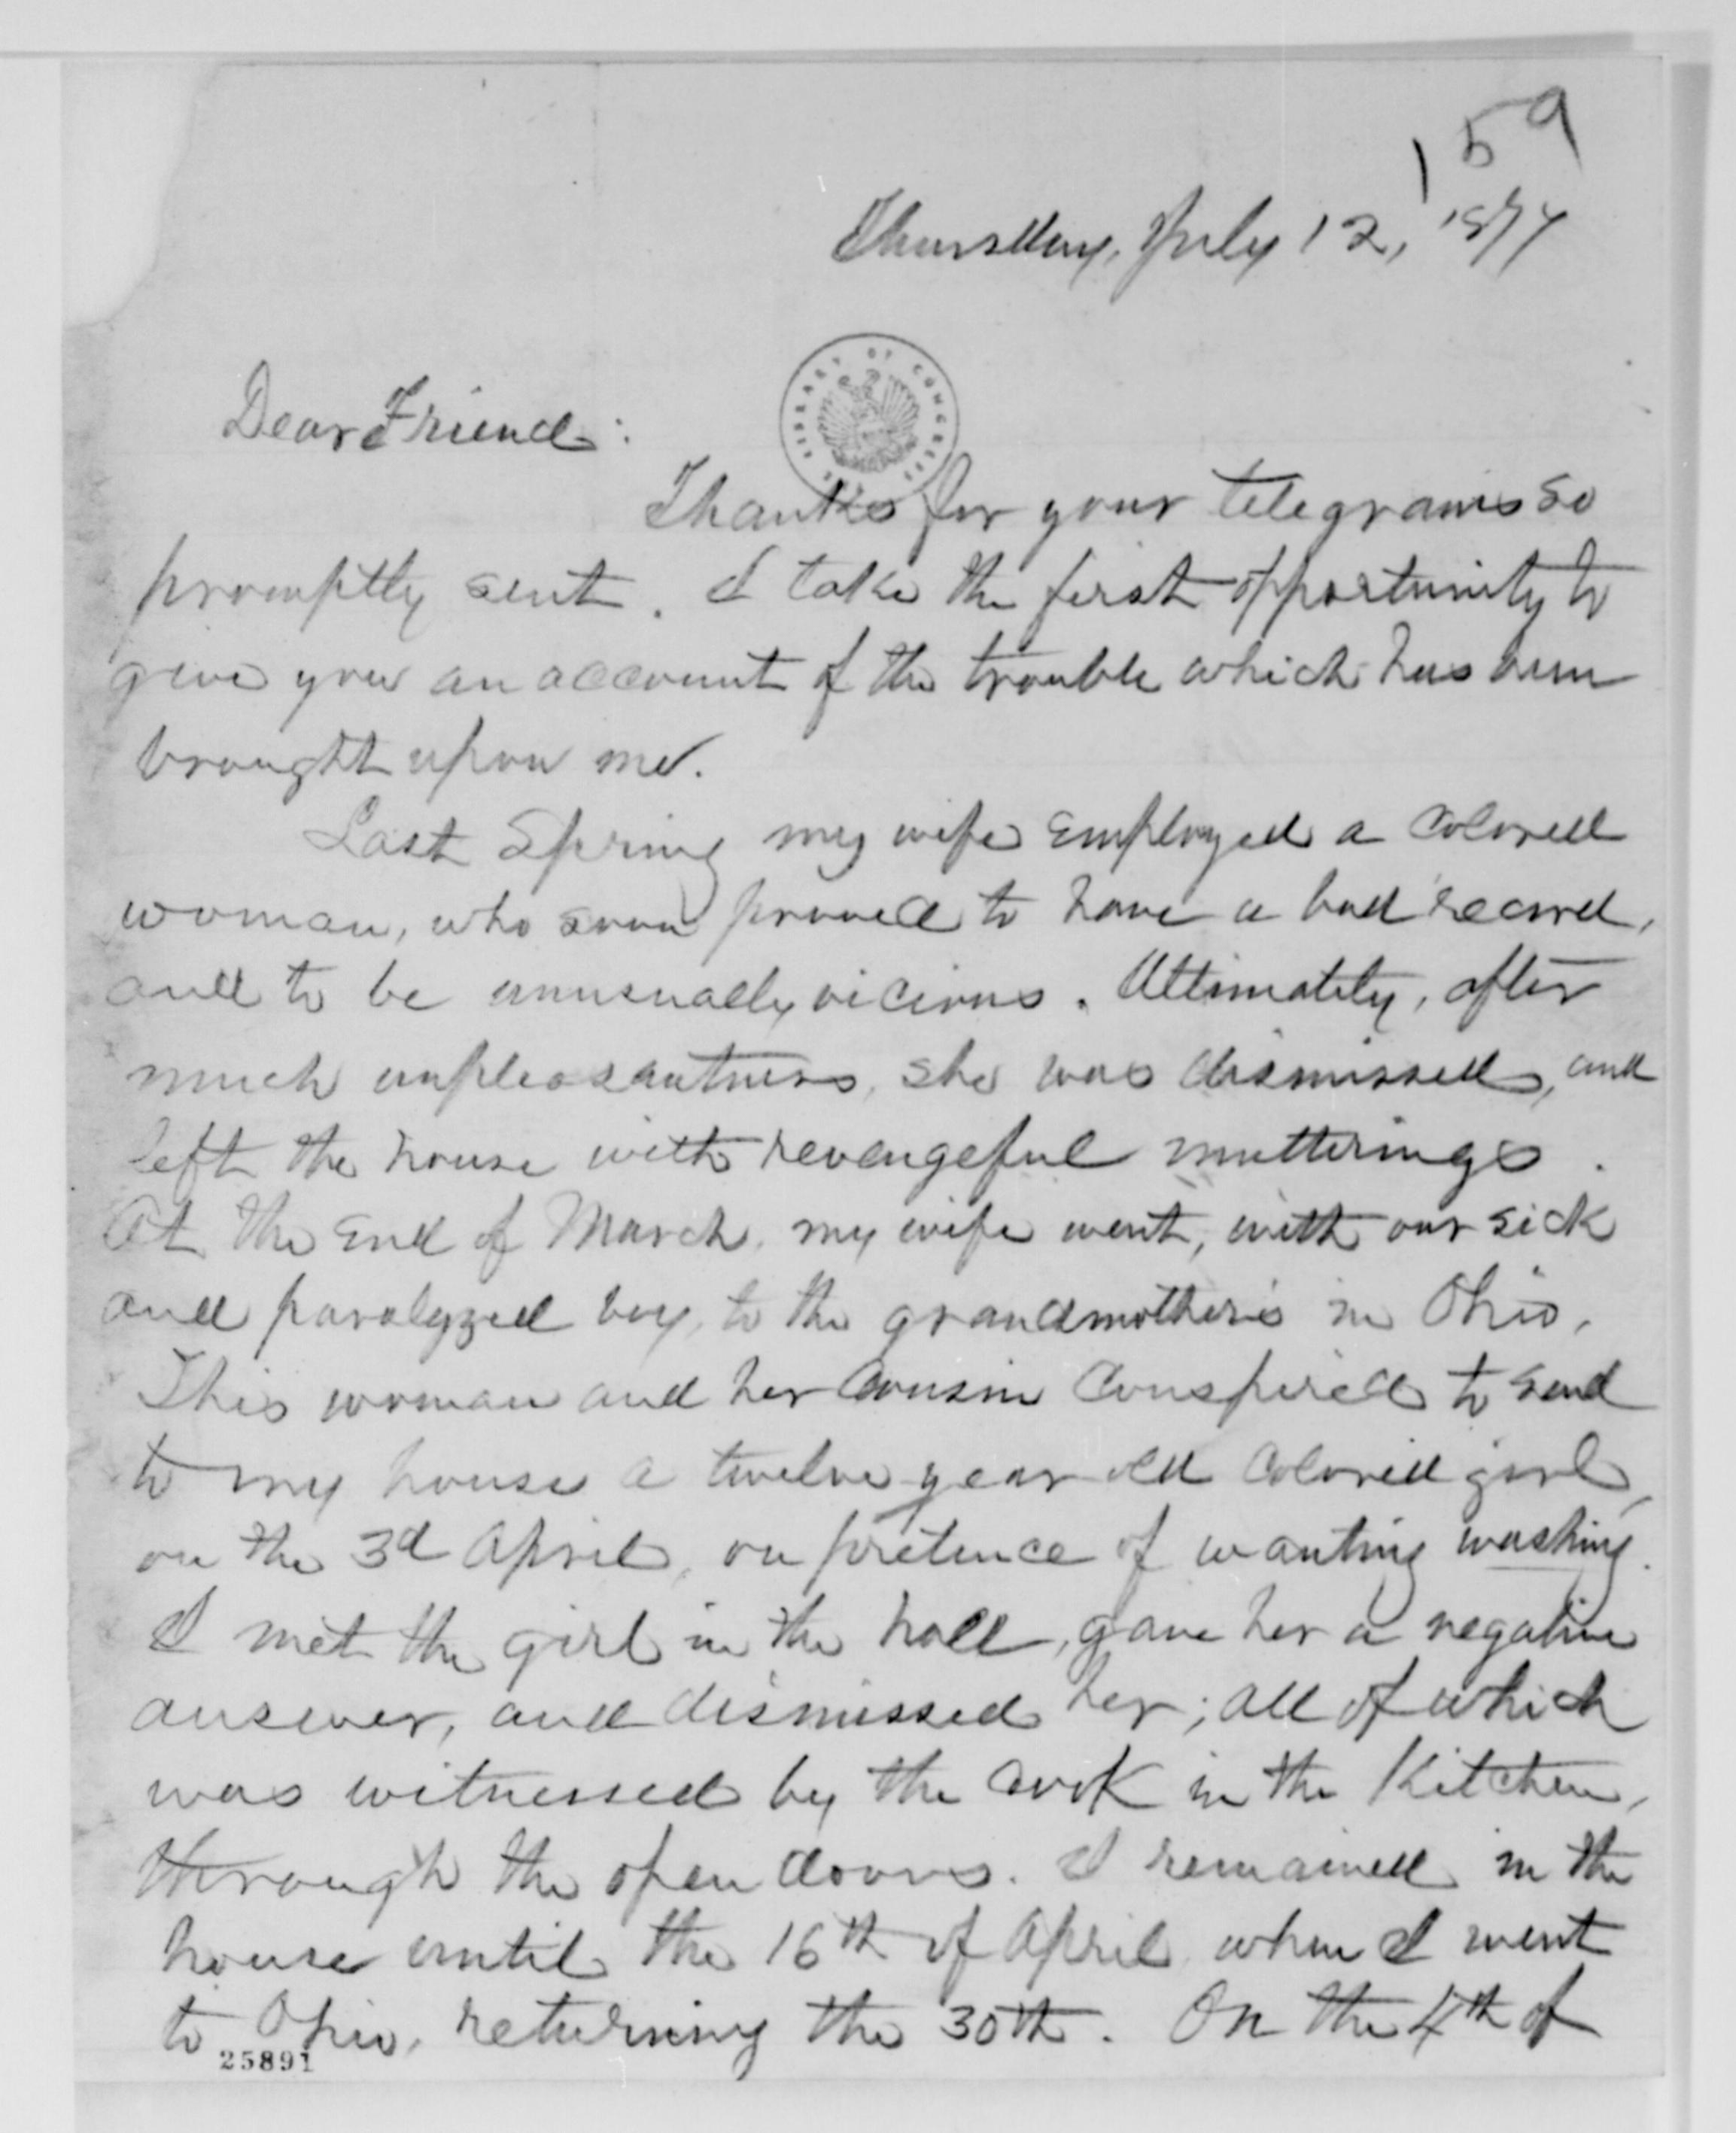 159
Thursday, July 12, 1877
LIBRARY OF CONGRESS
Dear Friend:
Thanks for your telegrams so
promptly sent. I take the first opportunity to
give you an account of the trouble which has been
brought upon me.
Last Spring my wife employed a colored
woman, who soon proved to have a bad record,
and to be unusually vicious. Ultimately, after
much unpleasantness, she was dismissed, and
left the house with revengeful mutterings.
At the end of March, my wife went, with our sick
and paralyzed boy, to the grandmother's in Ohio.
This woman and her cousin conspired to send
to my house a twelve year old colored girl,
on the 3d April, on pretence of wanting washing.
I met the girl in the hall, gave her a negative
answer, and dismissed her; all of which
was witnessed by the cook in the kitchen,
through the open doors. I remained in the
house until the 16th of April when I went
to Ohio, returning the 30th. On the 4th of
25891